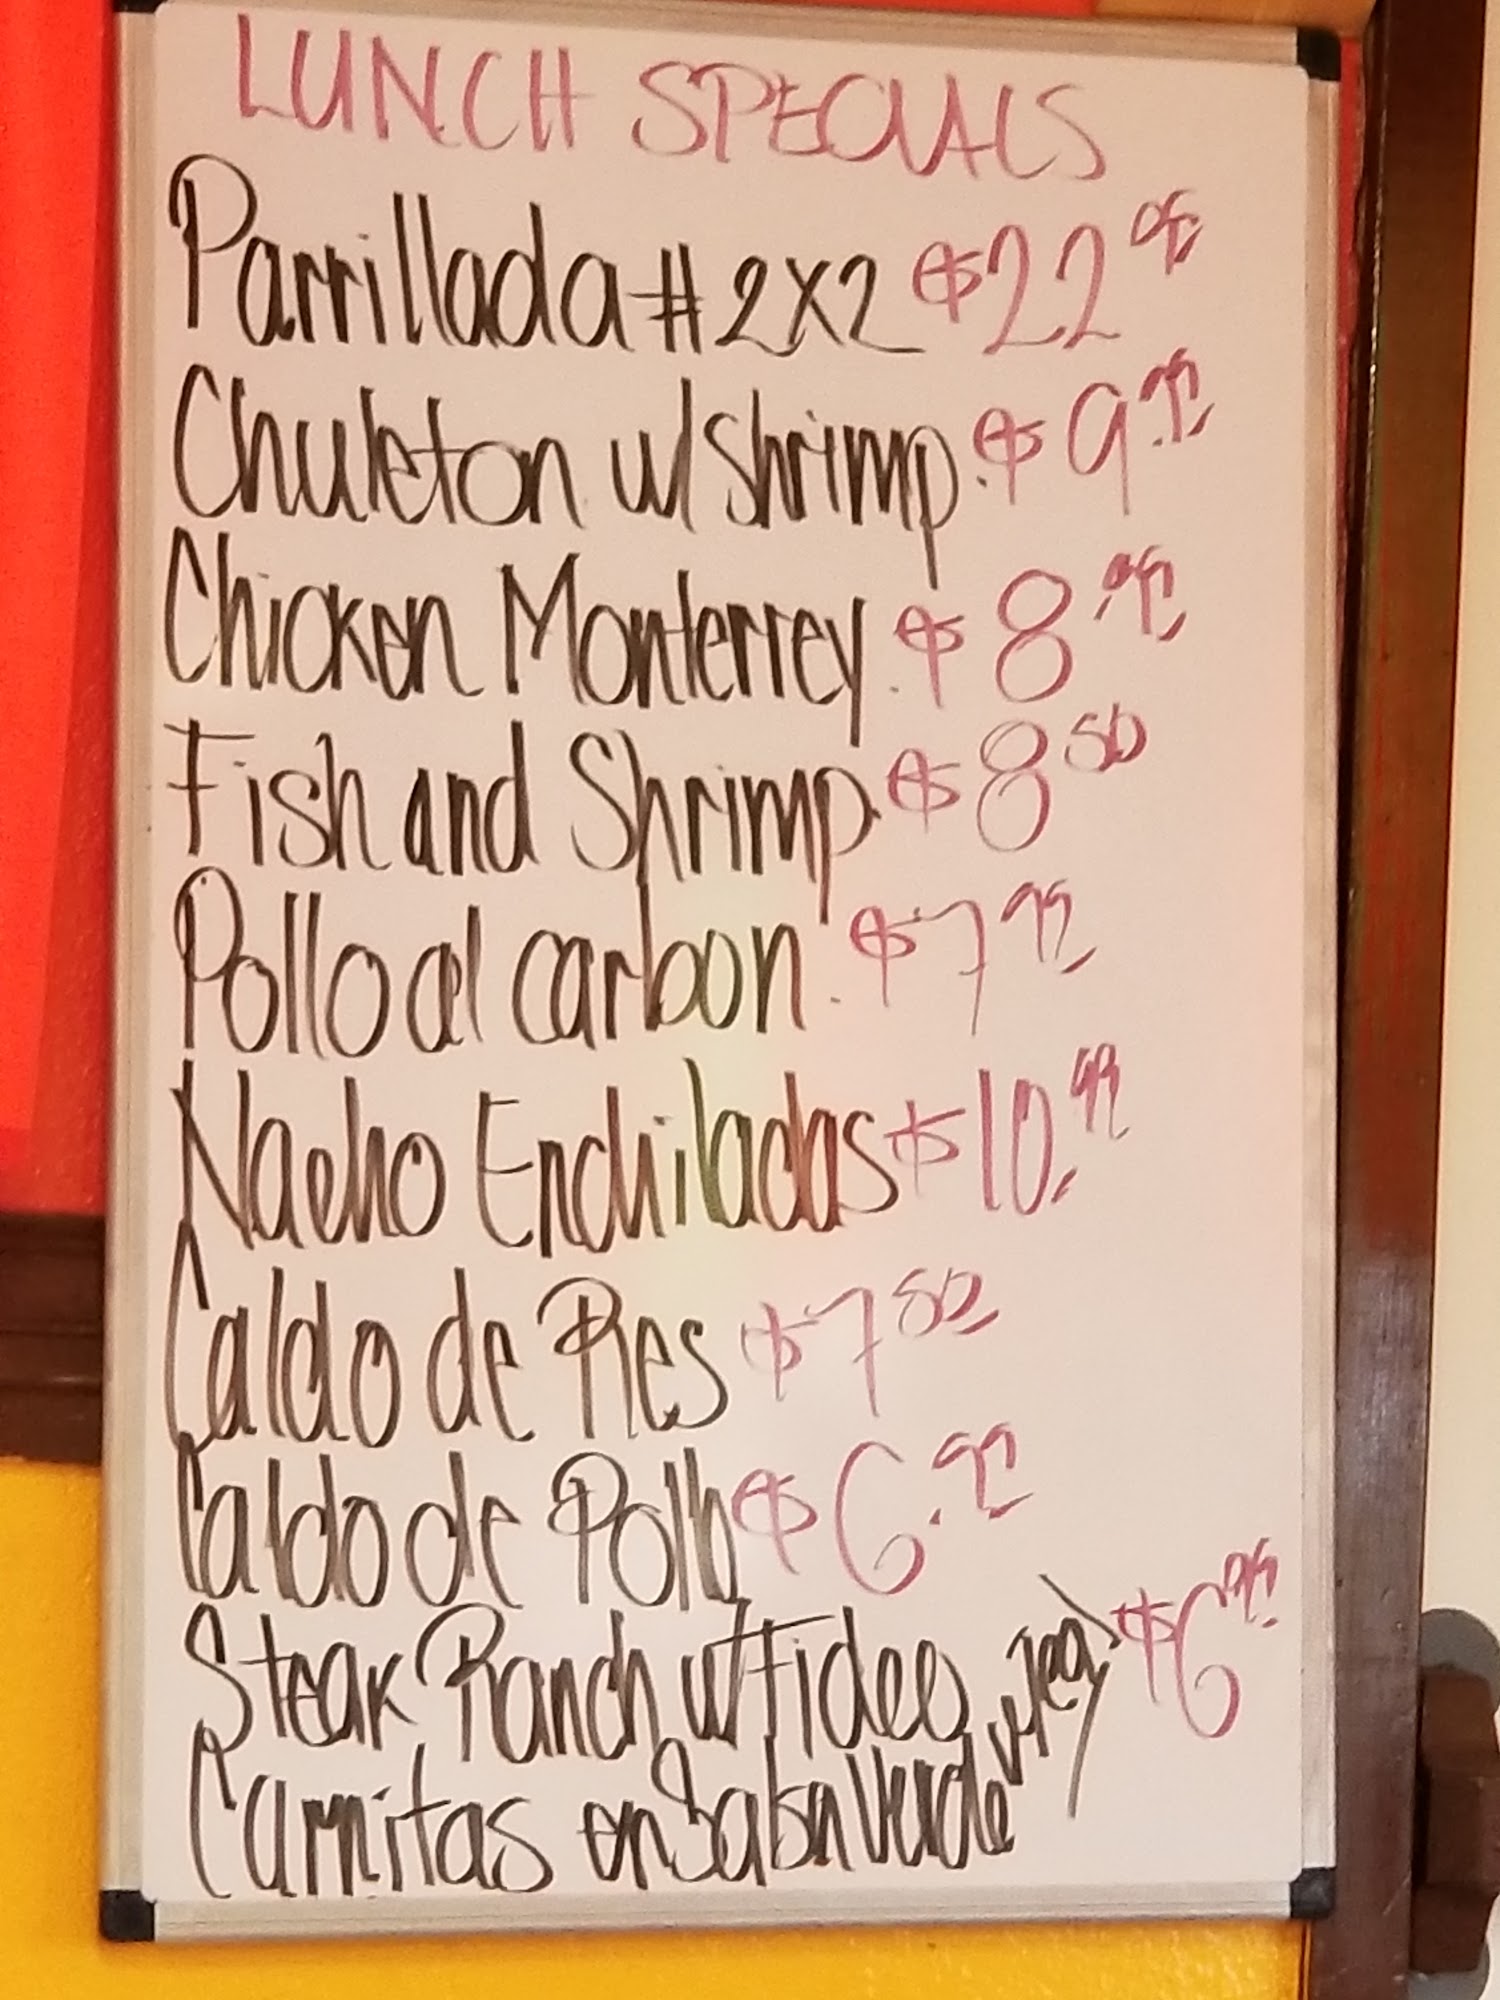 LUNCH SPECIALS
Parrillada #2x2 $22
Chuleton w/shrimp. $9.99
Chicken Monterrey. $8.99
Fish and Shrimp. $8 50
Pollo al carbon. $7 99
Nacho Enchiladas $10.99
Caldo de Res $7 50
Caldo de Pollo $6.99
Steak Ranch w/Fideo w/Tea! $6 99
Carnitas en Salsa Verde